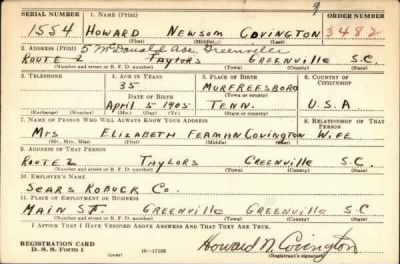 9
SERIAL NUMBER 1. NAME (Print) ORDER NUMBER
1554 HOWARD NEWSOM COVINGTON 3482
(First) (Middle) (Last)
2. ADDRESS (Print) 5 McDonald Ave. Greenville
ROUTE 2 TAYLORS GREENVILLE S.C.
(Number and street or R. F. D. number) (Town) (County) (State)
3. TELEPHONE 4. AGE IN YEARS 5. PLACE OF BIRTH 6. COUNTRY OF CITIZENSHIP
35 MURFREESBORO
DATE OF BIRTH (Town or county)
APRIL 5 1905 TENN. U.S.A
(Exchange) (Number) (Mo.) (Day) (Yr.) (State or country)
7. NAME OF PERSON WHO WILL ALWAYS KNOW YOUR ADDRESS 8. RELATIONSHIP OF THAT PERSON
MRS ELIZABETH FEAMAN COVINGTON WIFE
(Mr., Mrs., Miss) (First) (Middle) (Last)
9. ADDRESS OF THAT PERSON
ROUTE 2 TAYLORS GREENVILLE S.C.
(Number and street or R. F. D. number) (Town) (County) (State)
10. EMPLOYER'S NAME
SEARS ROBUCK CO.
11. PLACE OF EMPLOYMENT OR BUSINESS
MAIN ST. GREENVILLE GREENVILLE S C
(Number and street or R. F. D. number) (Town) (County) (State)
I AFFIRM THAT I HAVE VERIFIED ABOVE ANSWERS AND THAT THEY ARE TRUE.
REGISTRATION CARD
D. S. S. Form 1 (over) 16—17105 Howard N. Covington
(Registrant's signature)